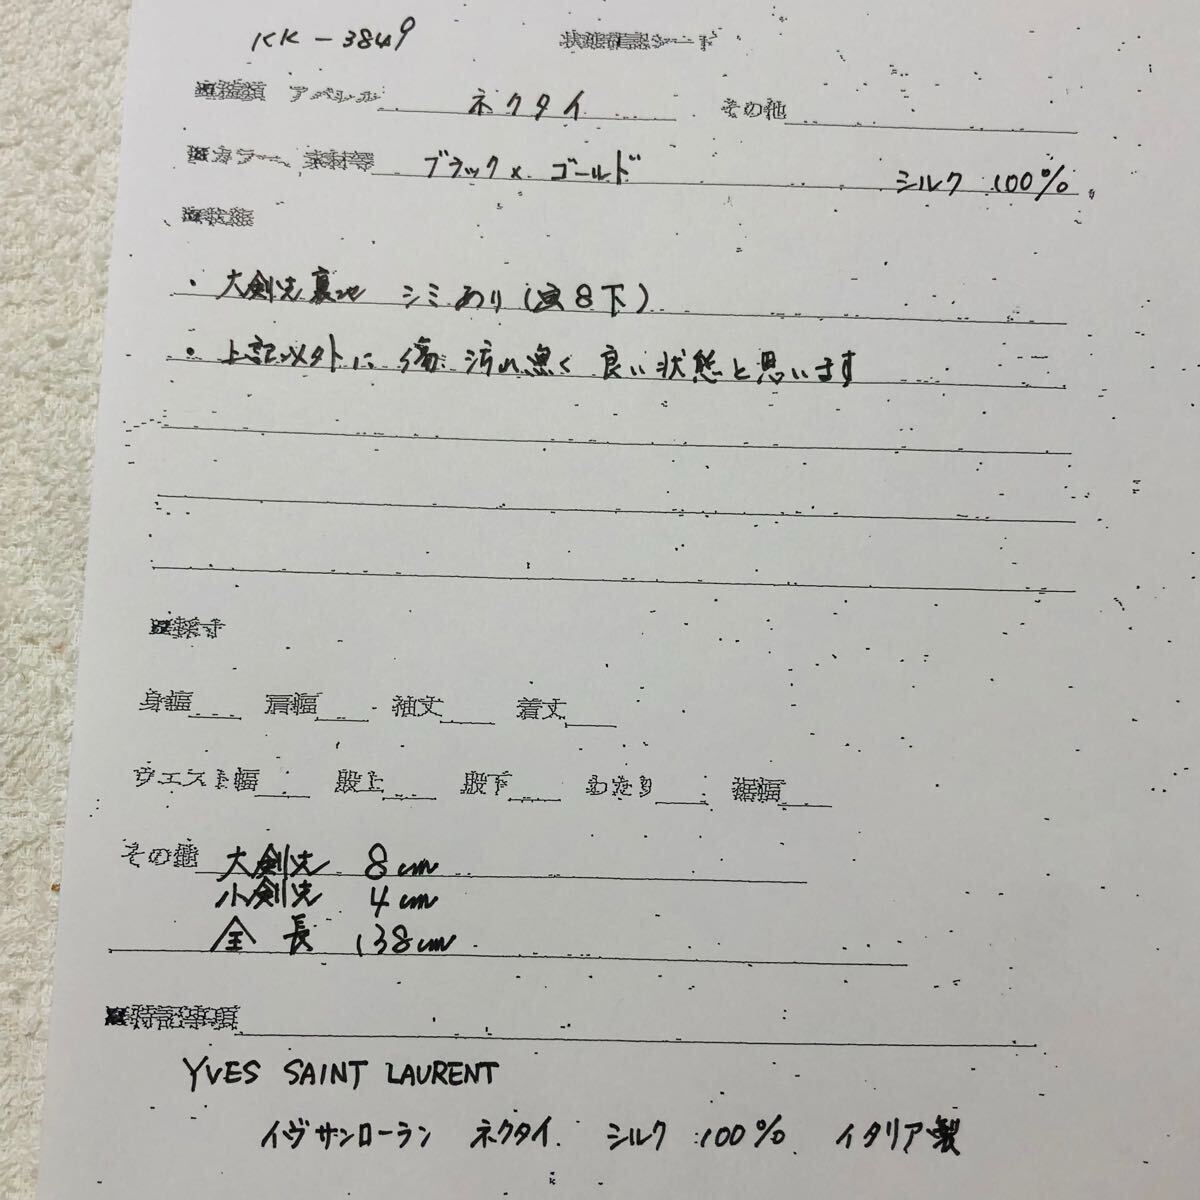 KK-3849 状態確認シート
■種類 アパレル ネクタイ その他
■カラー、素材等 ブラック × ゴールド シルク 100%
■状態
・大剣先裏地 シミあり(写8下)
・上記以外に傷、汚れ無く 良い状態と思います
■採寸
身幅 肩幅 袖丈 着丈
ウエスト幅 股上 股下 わたり 裾幅
その他 大剣先 8cm
小剣先 4cm
全長 138cm
■特記事項
YVES SAINT LAURENT
イヴサンローラン ネクタイ シルク 100% イタリア製